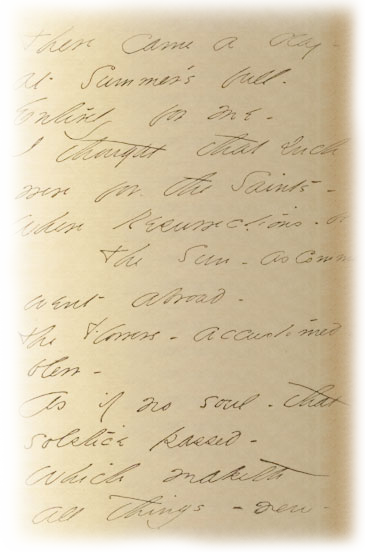 There came a day -
at Summer's full -
Entirely for me -
I thought that such
were for the Saints -
Where Resurrections -
the Sun - as comm
went abroad -
The Flowers - accustomed
blew -
As if no soul - that
solstice passed -
Which maketh
all things - new -